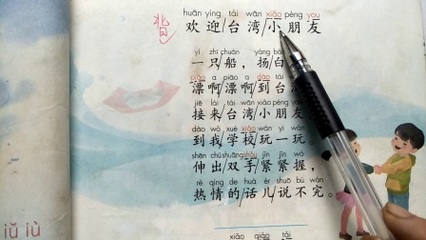 huān yíng tái wān xiǎo péng you
背 欢迎/台湾/小朋友
yì zhī chuán yáng bái
一只/船，扬/白
piāo a piāo a dào tái
漂啊/漂啊/到台
jiē lái tái wān xiǎo péng
接来/台湾/小朋友
dào wǒ xué xiào wán yi wán
到我/学校/玩一玩。
shēn chū shuāng shǒu jǐn jǐn wò
伸出/双手/紧紧握，
rè qíng de huà ér shuō bù wán
热情的/话儿/说不完。
iǔ iù
xiǎo qiáo tái